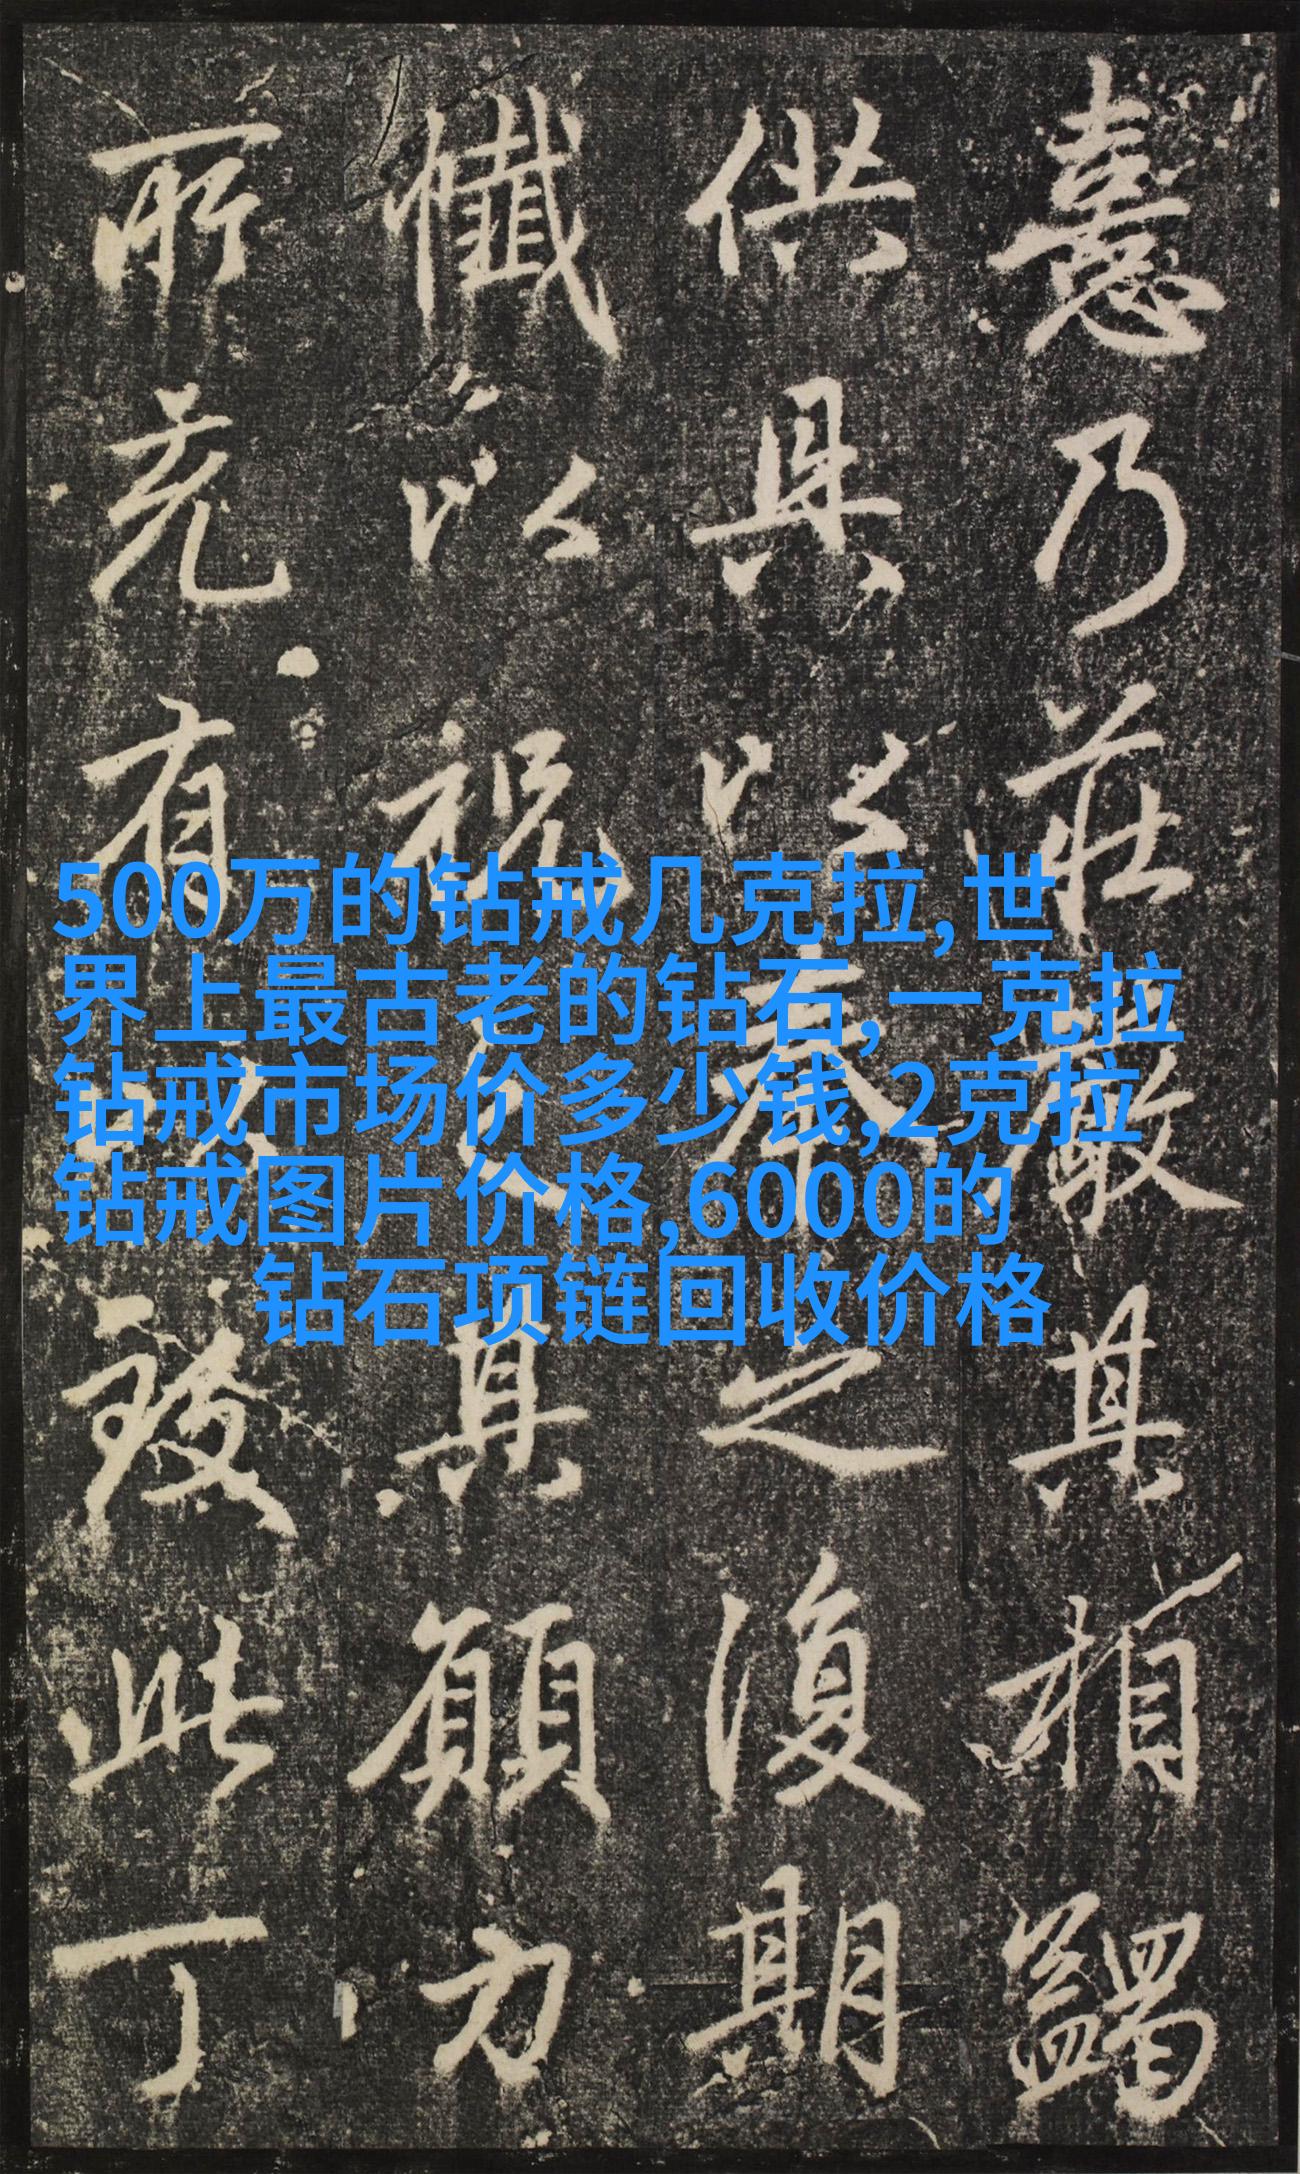 500万的钻戒几克拉,世
界上最古老的钻石,一克拉
钻戒市场价多少钱,2克拉
钻戒图片价格,6000的
钻石项链回收价格
憙乃莊嚴其相蠲
供具以奉之復期
懺以祝其願力
所有致此丁